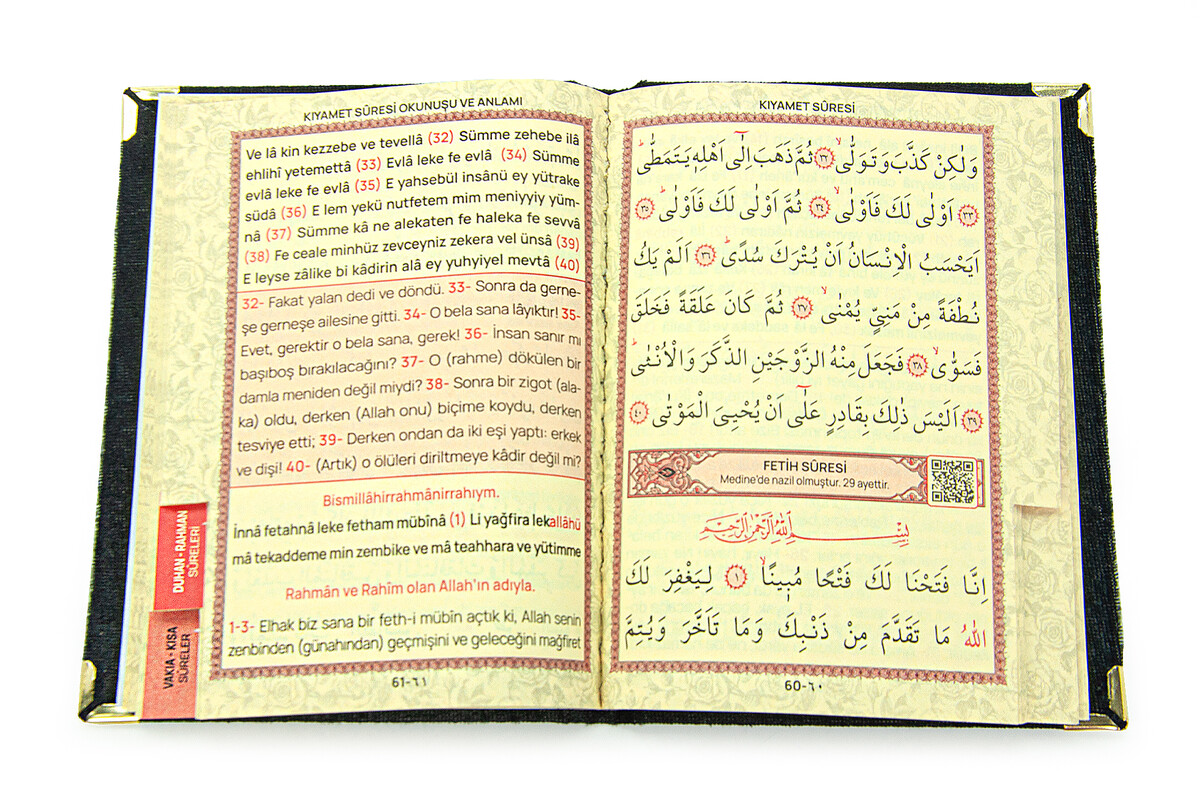 KIYAMET SÛRESİ
وَلٰكِنْ كَذَّبَ وَتَوَلّٰىۙ ﴿٣٢﴾ ثُمَّ ذَهَبَ اِلٰٓى اَهْلِه۪ يَتَمَطّٰىۜ
﴿٣٣﴾ اَوْلٰى لَكَ فَاَوْلٰىۙ ﴿٣٤﴾ ثُمَّ اَوْلٰى لَكَ فَاَوْلٰىۜ ﴿٣٥﴾
اَيَحْسَبُ الْاِنْسَانُ اَنْ يُتْرَكَ سُدًىۜ ﴿٣٦﴾ اَلَمْ يَكُ
نُطْفَةً مِنْ مَنِيٍّ يُمْنٰىۙ ﴿٣٧﴾ ثُمَّ كَانَ عَلَقَةً فَخَلَقَ
فَسَوّٰىۙ ﴿٣٨﴾ فَجَعَلَ مِنْهُ الزَّوْجَيْنِ الذَّكَرَ وَالْاُنْثٰىۜ
﴿٣٩﴾ اَلَيْسَ ذٰلِكَ بِقَادِرٍ عَلٰٓى اَنْ يُحْيِيَ الْمَوْتٰى ﴿٤٠﴾
FETİH SÛRESİ
Medine'de nazil olmuştur. 29 ayettir.
بِسْمِ اللّٰهِ الرَّحْمٰنِ الرَّحِيمِ
اِنَّا فَتَحْنَا لَكَ فَتْحًا مُب۪ينًاۙ ﴿١﴾ لِيَغْفِرَ لَكَ
اللّٰهُ مَا تَقَدَّمَ مِنْ ذَنْبِكَ وَمَا تَاَخَّرَ وَيُتِمَّ
60-٦٠
KIYAMET SÛRESİ OKUNUŞU VE ANLAMI
Ve lâ kin kezzebe ve tevellâ (32) Sümme zehebe ilâ
ehlihî yetemettâ (33) Evlâ leke fe evlâ (34) Sümme
evlâ leke fe evlâ (35) E yahsebül insânü ey yütrake
südâ (36) E lem yekü nutfetem mim meniyyiy yüm-
nâ (37) Sümme kâ ne alekaten fe haleka fe sevvâ
(38) Fe ceale minhüz zevceyniz zekera vel ünsâ (39)
E leyse zâlike bi kâdirin alâ ey yuhyiyel mevtâ (40)
32- Fakat yalan dedi ve döndü. 33- Sonra da gerne-
şe gerneşe ailesine gitti. 34- O bela sana lâyıktır! 35-
Evet, gerektir o bela sana, gerek! 36- İnsan sanır mı
başıboş bırakılacağını? 37- O (rahme) dökülen bir
damla meniden değil miydi? 38- Sonra bir zigot (ala-
ka) oldu, derken (Allah onu) biçime koydu, derken
tesviye etti; 39- Derken ondan da iki eşi yaptı: erkek
ve dişi! 40- (Artık) o ölüleri diriltmeye kâdir değil mi?
Bismillâhirrahmânirrahıym.
İnnâ fetahnâ leke fetham mübînâ (1) Li yağfira lekallâhü
mâ tekaddeme min zembike ve mâ teahhara ve yütimme
Rahmân ve Rahîm olan Allah'ın adıyla.
1-3- Elhak biz sana bir feth-i mübîn açtık ki, Allah senin
zenbinden (günahından) geçmişini ve geleceğini mağfiret
61-٦١
DUHAN - RAHMAN
SÛRELERİ
VAKIA - KISA
SÛRELER